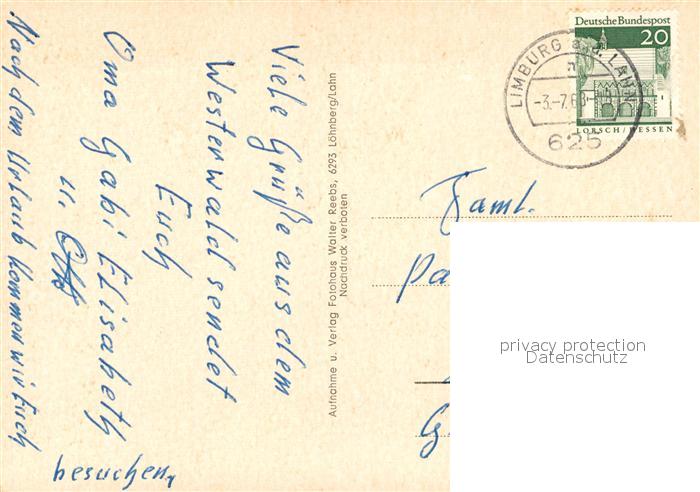 Viele Grüße aus dem
Westerwald sendet
Euch
Oma Gabi Elisabeth
u.
Nach dem Urlaub kommen wir Euch
besuchen,
Aufnahme u. Verlag Fotohaus Walter Reebs, 6293 Löhnberg/Lahn
Nachdruck verboten
Deutsche Bundespost
20
LORSCH/HESSEN
LIMBURG a.d. LAHN
-3.-7.68-
625
Faml.
Pa
G
privacy protection
Datenschutz